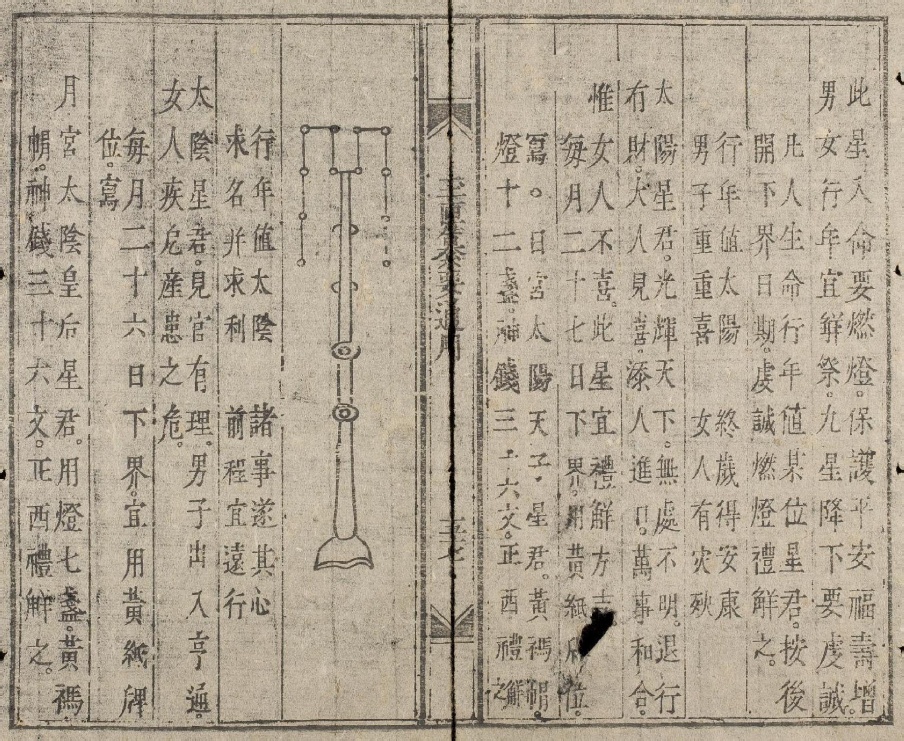 此星入命要燃燈。保護平安福壽增。
男女行年宜解祭。九星降下要虔誠
凡人生命行年值某位星君。按後
開下界日期。虔誠燃燈禮解之。
行年值太陽 終歲得安康
男子重重喜 女人有灾殃
太陽星君。光輝天下。無處不明。退行
有財。大人見喜。添人進口。萬事和合。
惟女人不喜。此星宜禮解方吉
每月二十七日下界。用黃紙牌位。
寫。日宮太陽天子星君。黃禡帽。
燈十二盞。神錢三十六文。正西禮解之
通用
三十七
行年值太陰 諸事遂其心
求名并求利 前程宜遠行
太陰星君。見官有理。男子出入亨通。
女人疾厄產患之危。
每月二十六日下界。宜用黃紙牌
位。寫
月宮太陰皇后星君。用燈七盞。黃禡
帽。神錢三十六文。正西禮解之。